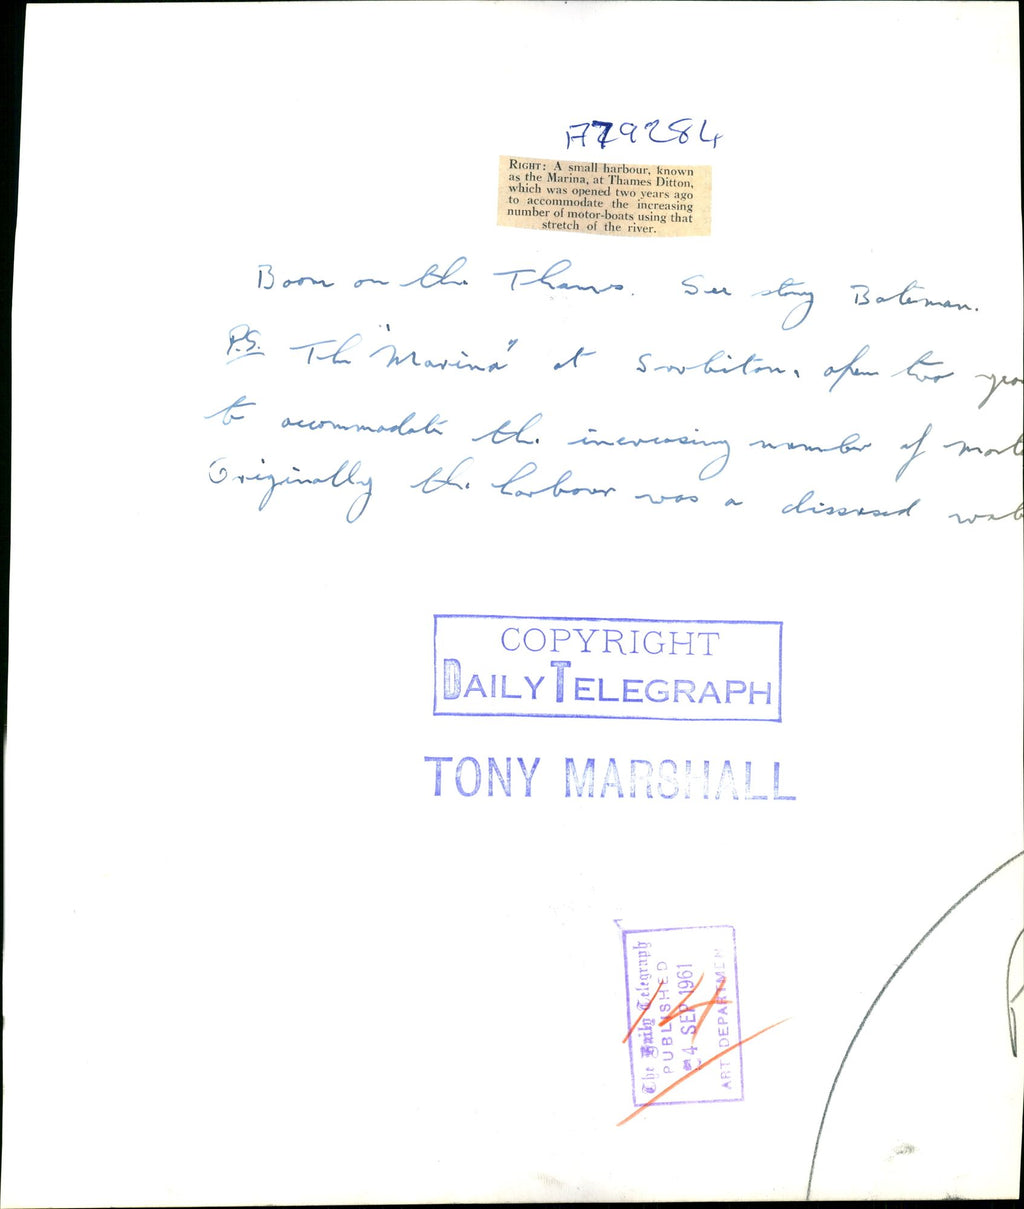 A79284
RIGHT: A small harbour, known
as the Marina, at Thames Ditton,
which was opened two years ago
to accommodate the increasing
number of motor-boats using that
stretch of the river.
Boom on the Thames. See story Bateman.
P.S. The "Marina" at Surbiton, open two
to accommodate the increasing number of
Originally the harbour was a disused
COPYRIGHT
DAILY TELEGRAPH
TONY MARSHALL
The Daily Telegraph
PUBLISHED
-4 SEP 1961
ART DEPARTMEN